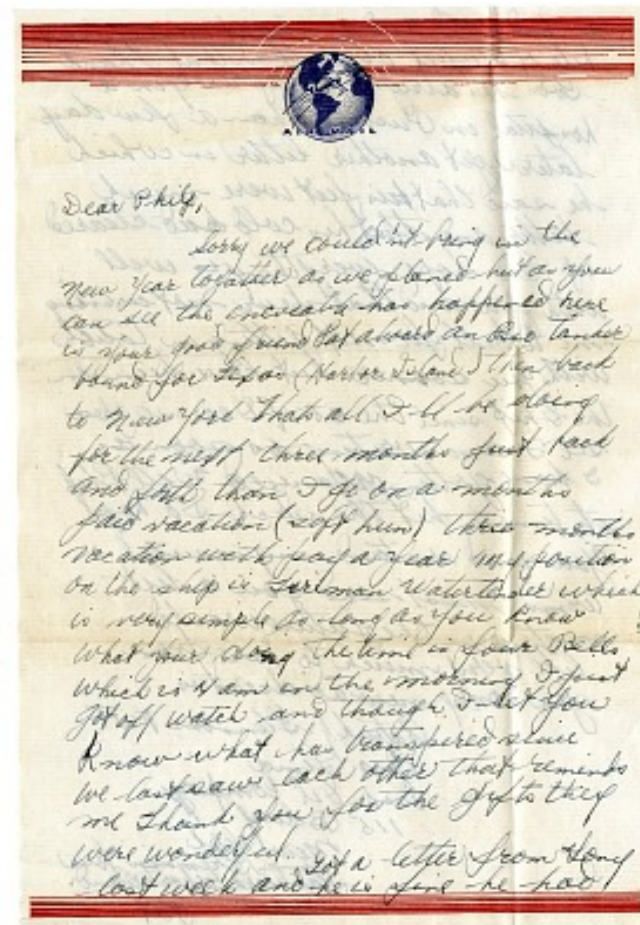 AIR MAIL
Dear Phily,
Sorry we couldn't bring in the
New Year together as we planed but as you
can see the has happened here
is your good friend Pat aboard an Tanker
bound for Texas (Harbor Island) then back
to New York thats all I ll be doing
for the next three months just back
and fort than I go on a months
paid vacation (soft hun) three months
vacation with pay a year my position
on the ship is Fireman Watertender which
is very simple as long as you know
what your doing the time is four Bells
which is 4 am in the morning I just
got off watch and though I let you
know what has transpired since
we last saw each other that reminds
me thank you for the gifts they
were wonderful. Got a letter from
last week and he is fine he had